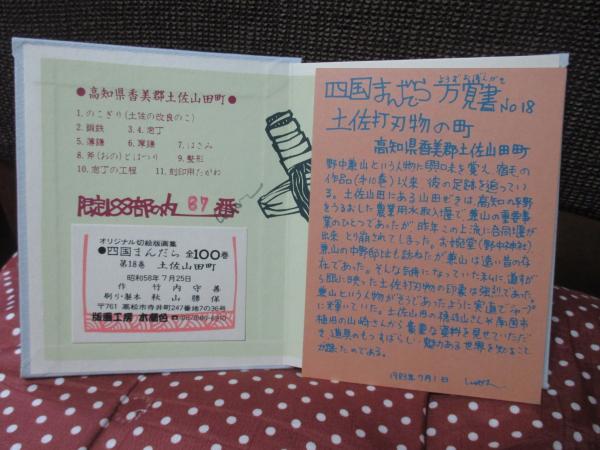 ●高知県香美郡土佐山田町●
1.のこぎり(土佐の改良のこ)
2.鋼鉄 3.4.庖丁
5.薄鎌 6.厚鎌 7.はさみ
8.斧(おの)とはつり 9.整形
10.庖丁の工程 11.刻印用たがね
限刻88部の内 87番
オリジナル切絵版画集
●四国まんだら 全100巻
第18巻 土佐山田町
昭和58年7月25日
作 竹内守善
刷り・製本 秋山勝保
〒761 高松市寺井町247番地7の36号
版画工房 本蘭色
四国まんだら 万覚書 No18
よろずおぼえがき
土佐打刃物の町
高知県香美郡土佐山田町
野中兼山という人物に興味を覚え、宿毛の
作品(半10巻)以来、彼の足跡を追ってい
る。土佐山田にある山田ぜきは、高知の原野
をうるおした農業用水取入堰で、兼山の重要事
業のひとつであったが昨年、この上流に合同堰が
出来、とり崩されてしまった。お婉堂(野中神社)
兼山の中野邸跡も訪ねたが、兼山は遠い昔の存
在であった。そんな気持になっていた私に、道すが
ら眼に映った土佐打刃物の印象は強烈であった。
兼山という人物がそうであったように、実直でシャープ
に輝いていた。土佐山田の
植田の山崎さんから貴重な資料を見せていただ
き、道具のもつすばらしい魅力ある世界を知ること
が出来たのである。
1983年7月1日